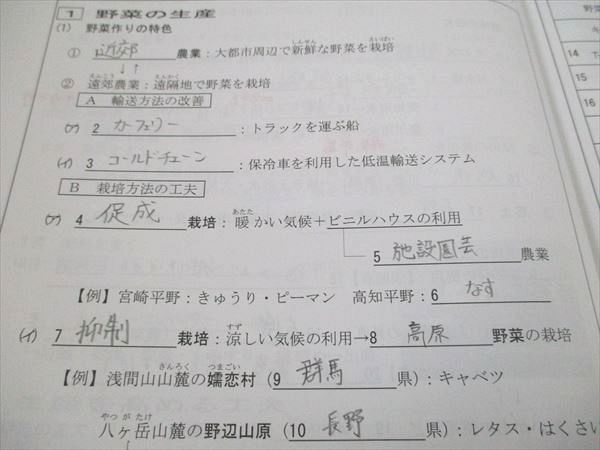 1 野菜の生産
(1) 野菜作りの特色
① 近郊 農業:大都市周辺で新鮮な野菜を栽培
しんせん さいばい
↓↑
② 遠郊農業:遠隔地で野菜を栽培
えんこう えんかく
A 輸送方法の改善
(ア) 2 カーフェリー :トラックを運ぶ船
(イ) 3 コールドチェーン :保冷車を利用した低温輸送システム
B 栽培方法の工夫
(ア) 4 促成 栽培:暖かい気候+ビニルハウスの利用
あたた
5 施設園芸 農業
【例】宮崎平野:きゅうり・ピーマン 高知平野:6 なす
(イ) 7 抑制 栽培:涼しい気候の利用→8 高原 野菜の栽培
すず
【例】浅間山山麓の嬬恋村(9 群馬 県):キャベツ
さんろく つまごい
八ヶ岳山麓の野辺山原(10 長野 県):レタス・はくさい
やつ が たけ
野菜
キ
14
15
16